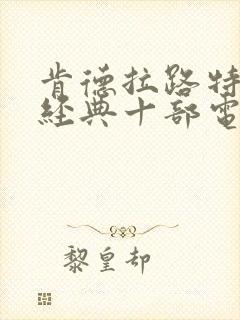 肯德拉路特
經典十部電
黎皇却